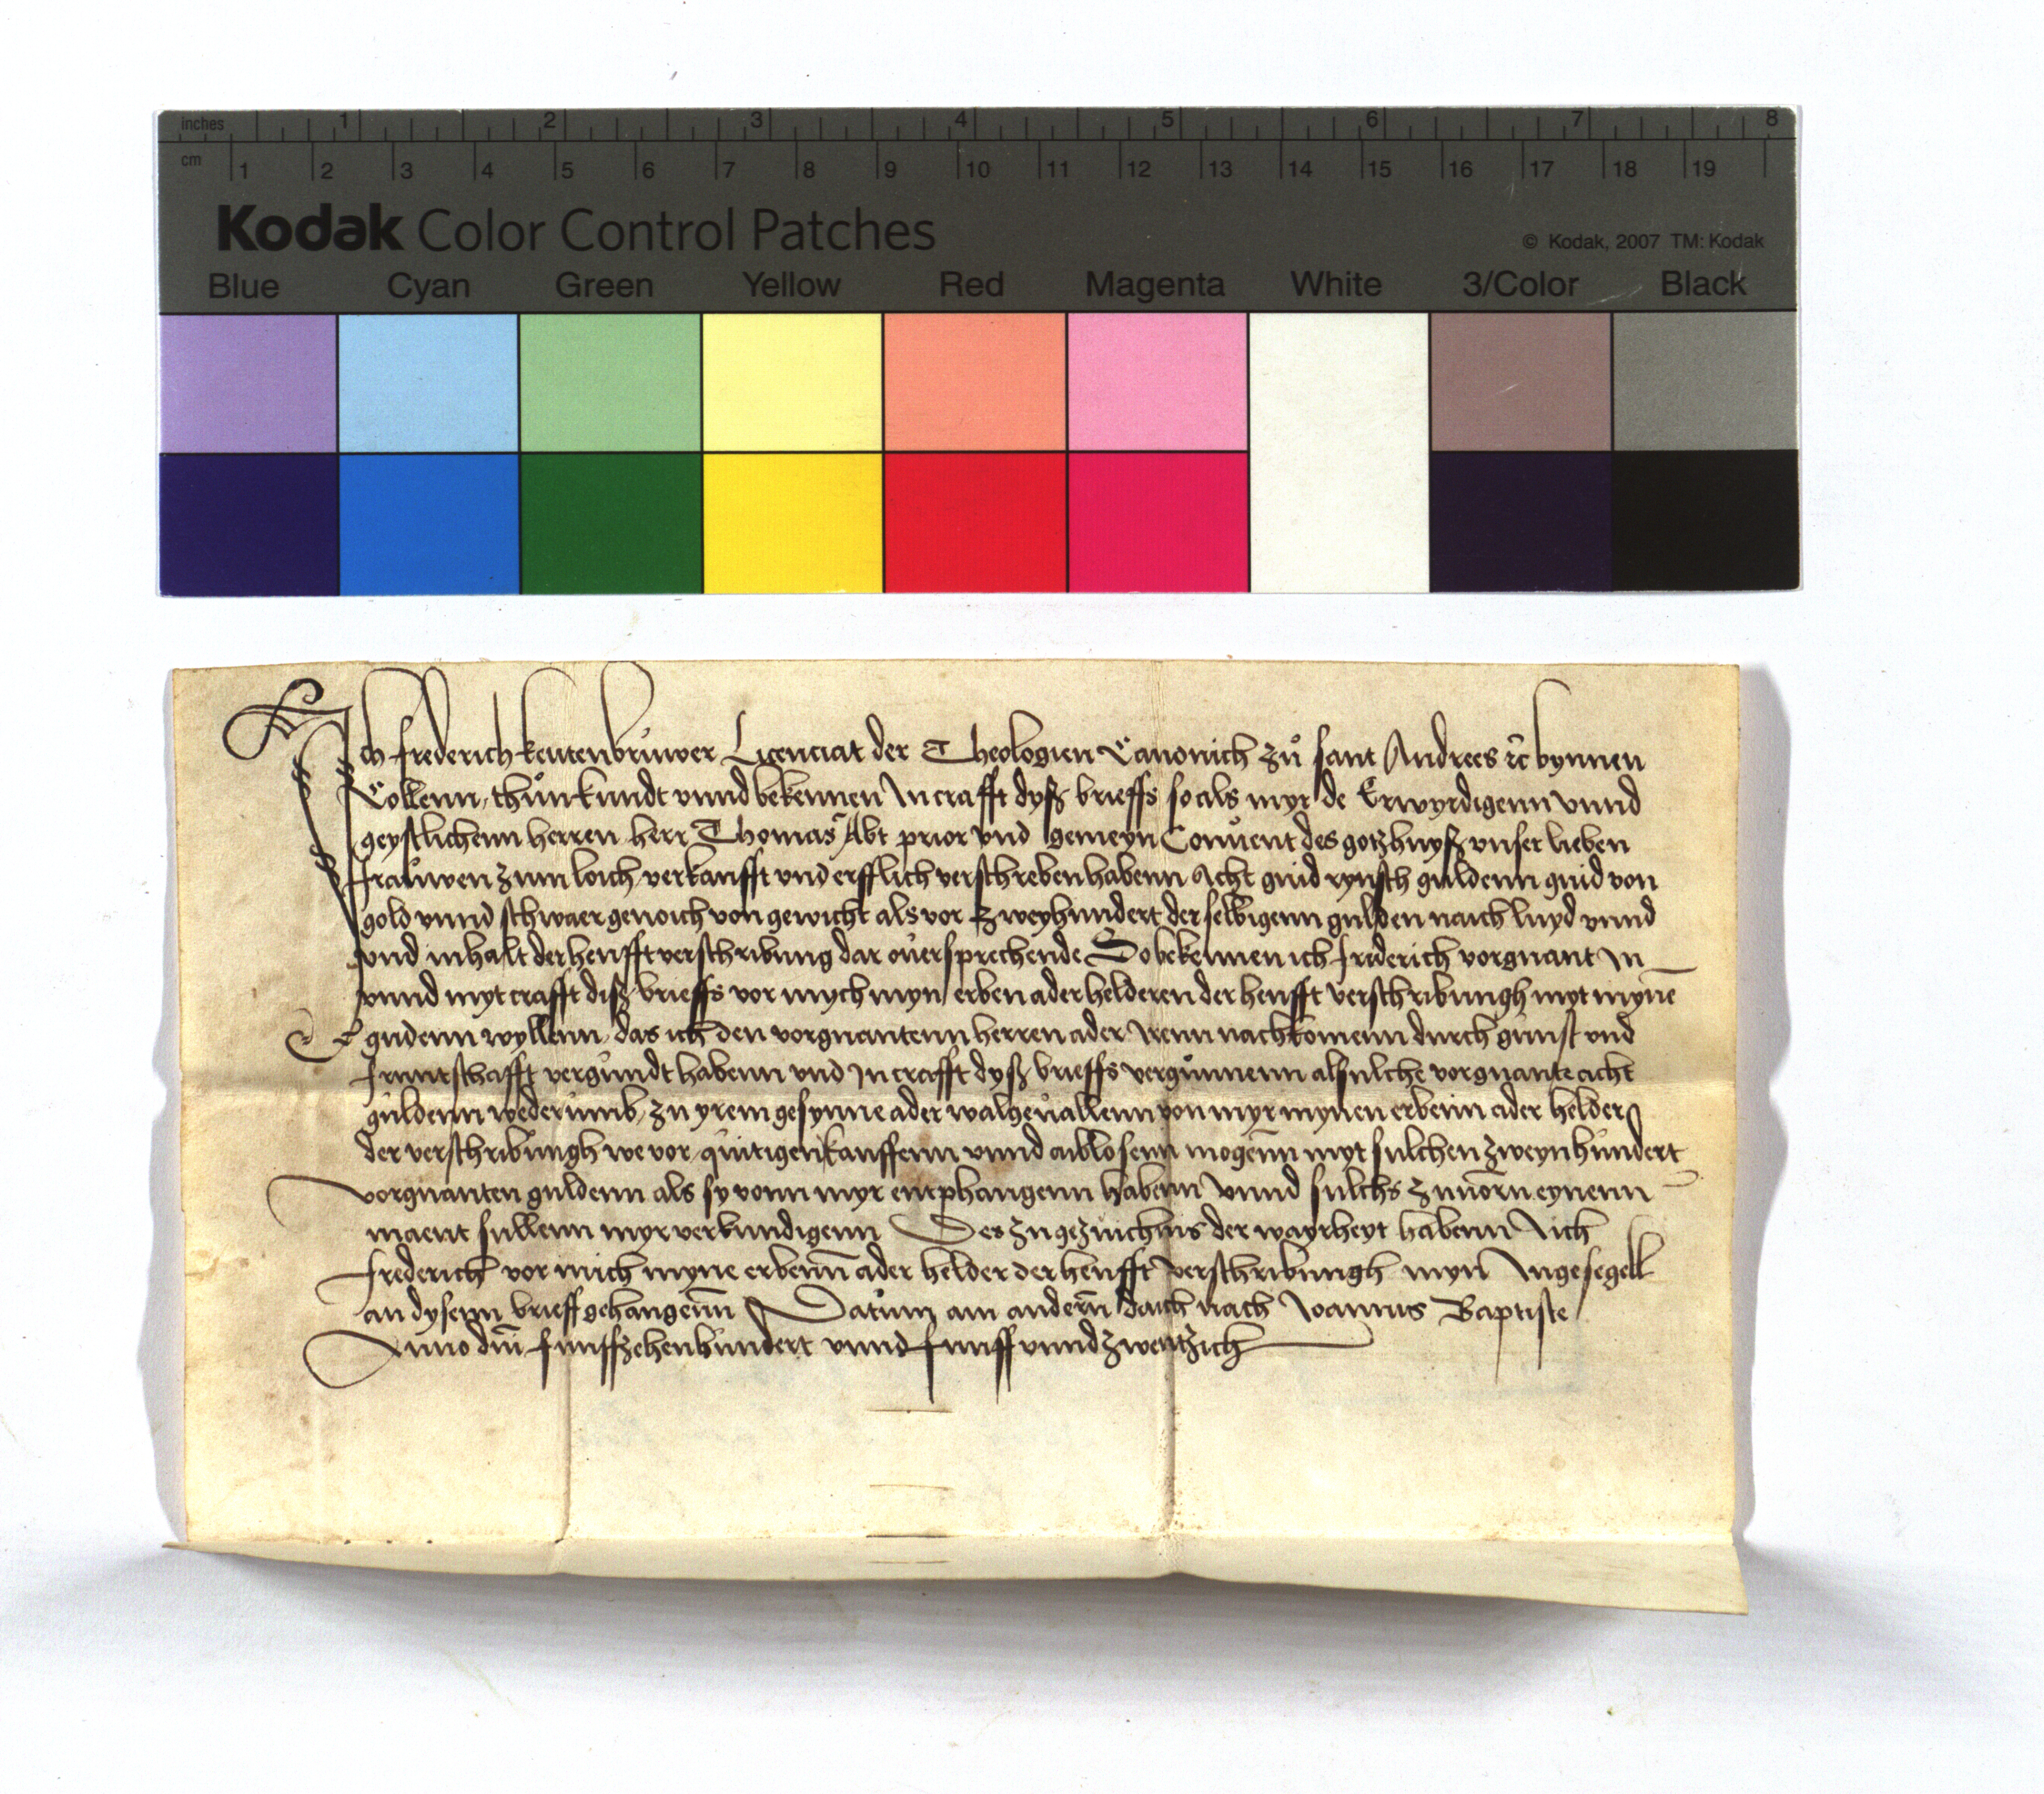 inches 1 2 3 4 5 6 7 8
cm 1 2 3 4 5 6 7 8 9 10 11 12 13 14 15 16 17 18 19
Kodak Color Control Patches
© Kodak, 2007 TM: Kodak
Blue Cyan Green Yellow Red Magenta White 3/Color Black
Ich frederich keutenbrůwer Licenciat der Theologien Canonich zů sant Andrees ꝛc bynnen
Collenn, thůn kundt vnnd bekennen In crafft dyß brieffs so als myr de Erwyrdigenn vnnd
geystlichenn herren herr Thomas Abt prior vnd gemeyn Conuent des gotzhuyß vnser lieben
frauwen zum loich verkaufft vnd erfflich verschreben habenn Acht guid rynsch guldenn guid von
gold vnnd schwaer genoich von gewicht als vor zweyhundert der selbigenn gulden naich luyd vnnd
vnd inhalt der heufft verschribung dar ouer sprechende So bekennen ich friderich vorgnant In
vnnd myt crafft diß brieffs vor mych myn erben ader helderen der heufft verschribungh myt myne
gudenn wyllenn, das ich den vorgnantenn herren ader Irenn nachkomenn durch gunst vnd
fruntschafft vergundt habenn vnd In crafft dyß brieffs vergůnnenn alsulche vorgnante acht
guldenn wederumb, zu yrem gesynne ader walgeuallenn von myr mynen erbenn ader helder
der verschribungh we vor, quitigen kauffenn vnnd abloesenn mogenn myt sulchen zweynhundert
vorgnanten guldenn als sy vonn myr entphangenn habenn Vnnd sulchs zuuorn eynenn
maent sullenn myr verkundigenn Des zu gezuichnis der wayrheyt habenn Ich
frederich vor mich myne erbenn ader helder der heufft verschribungh myn Ingesegell
an dysenn brieff gehangenn Datum am andern daich nach Ioannis Baptiste
Anno dni funffzehenhundert vnnd funff vnnd zwentzich